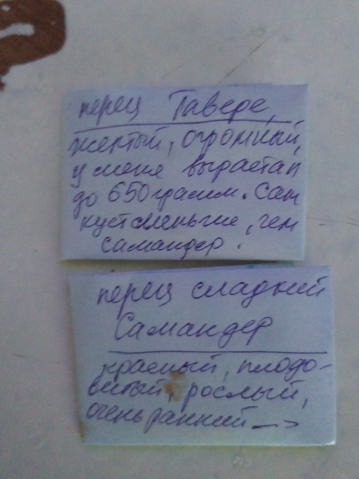 перец Тавере,
желтый, огромный,
у меня вырастал
до 650 грамм. Сам
куст меньше, чем
Самандер.
перец сладкий
Самандер
красный, плодо-
витый, рослый,
очень ранний -->